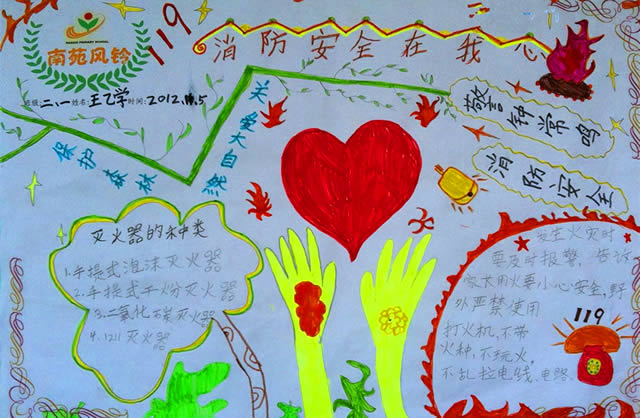 南苑风铃
119
消防安全在我心
班级:二、一 姓名:王乙学 时间:2012.11.5
关爱大自然
保护森林
警钟常鸣
消防安全
灭火器的种类
1.手提式泡沫灭火器
2.手提式干粉灭火器
3.二氧化碳灭火器
4.1211灭火器
发生火灾时
要及时报警,告诉
家长用火要小心安全,野
外严禁使用
打火机,不带
火种,不玩火。
不乱拉电线、电路
119